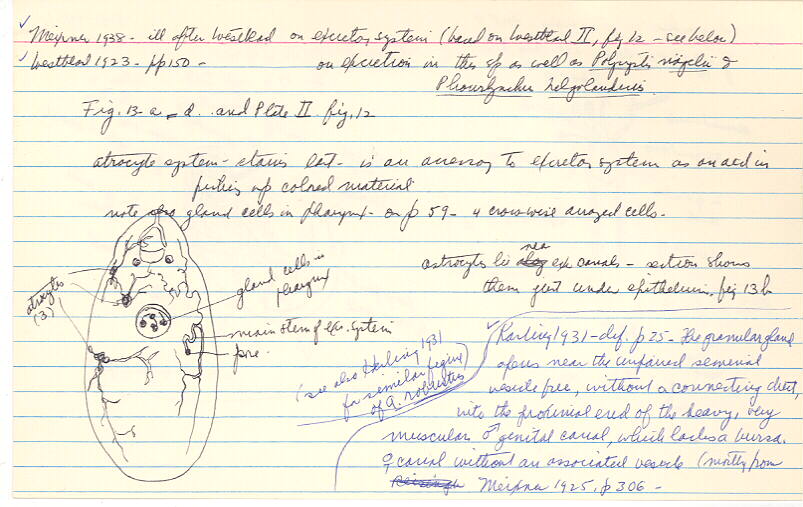 ✓ Meixner 1938 - ill after Westblad on excretory system (based on Westblad II, fig 12 - see below)
✓ Westblad 1923 - pp 150 - on excretion in this sp as well as Polycystis nägelii &
Phonorhynchus helgolandicus
Fig. 13 a - d. and Plate II fig. 12
atrocyte system - stains last - is an accessory to excretory system as an aid in
picking up colored material
note also gland cells in pharynx - on p 59 - 4 crosswise arranged cells.
astrocytes lie near exc canals - section shows
them just under epithelium, fig 13 b
atrocytes
(3)
gland cells in
pharynx
main stem of exc. system
pore
(see also Karling 1931
for similar figure
of G. robustus
✓ Karling 1931 - def. p 25 - The granular gland
opens near the unpaired seminal
vesicle free, without a connecting duct,
into the proximal end of the heavy, very
muscular ♂ genital canal, which lacks a bursa.
♀ canal without an associated vesicle (mostly from
Meixner 1925, p 306 -